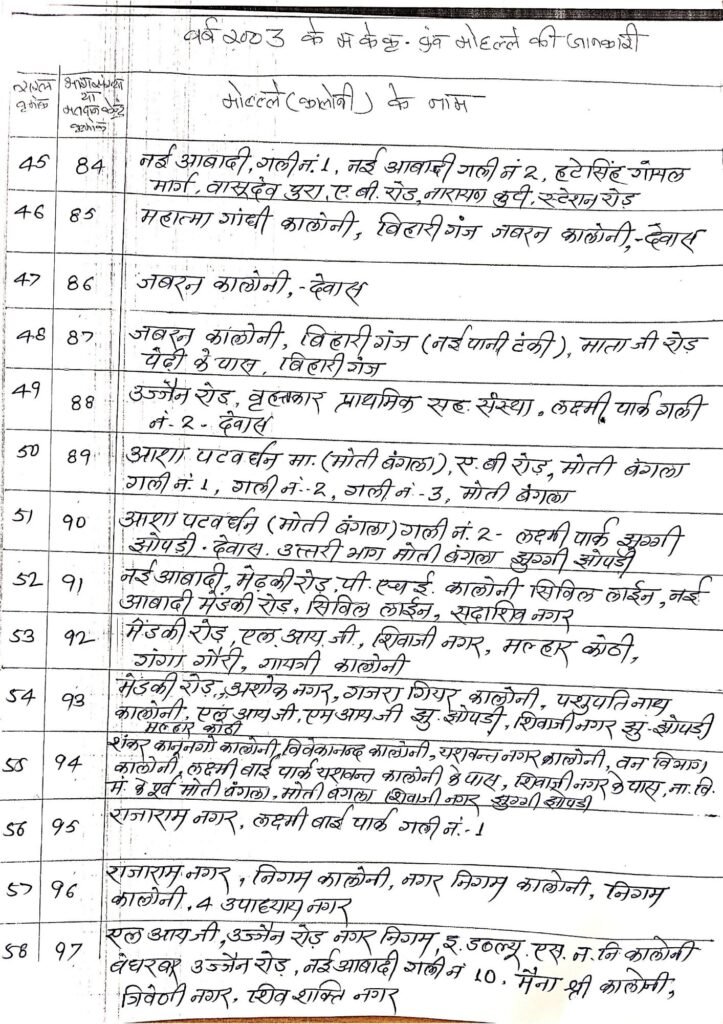 वर्ष 2003 के म के क्र. एवं मोहल्ले की जानकारी
सरल क्रमांक
भाग संख्या या मतदान केन्द्र क्रमांक
मोहल्ले (कालोनी) के नाम
45 84 नई आबादी, गली नं. 1, नई आबादी गली नं 2, हटेसिंह गोयल
मार्ग, वासूदेव पुरा, ए. बी. रोड, नारायण कुटी, स्टेशन रोड़
46 85 महात्मा गांधी कालोनी, बिहारी गंज जबरन कालोनी,-देवास
47 86 जबरन कालोनी,-देवास
48 87 जबरन कालोनी, बिहारी गंज (नई पानी टंकी), माता जी रोड़
पेढी के पास, बिहारी गंज
49 88 उज्जैन रोड़, वृहत्ताकार प्राथमिक सह. संस्था, लक्ष्मी पार्क गली
नं.-2 - देवास
50 89 आशा पटवर्धन मा. (मोती बंगला), ए. बी रोड़, मोती बंगला
गली नं. 1, गली नं.-2, गली नं.-3, मोती बंगला
51 90 आशा पटवर्धन (मोती बंगला) गली नं. 2- लक्ष्मी पार्क झुग्गी
झोपडी - देवास. उत्तरी भाग मोती बंगला झुग्गी झोपडी
52 91 नई आबादी, मेढ़की रोड़, पी. एच ई. कालोनी सिविल लाईन, नई
आबादी मेंडकी रोड़, सिविल लाईन, सदाशिव नगर
53 92 मेंडकी रोड़, एल. आय. जी., शिवाजी नगर, मल्हार कोठी,
गंगा गौरी, गायत्री कालोनी
54 93 मेंडकी रोड़, अशोक नगर, गजरा गियर कालोनी, पशुपति नाथ
कालोनी, एल आय जी, एम आय जी झु. झोपडी, शिवाजी नगर झु. झोपडी
मल्हार कोठी
55 94 शंकर कानूनगो कालोनी, विवेकानन्द कालोनी, यशवन्त नगर कालोनी, वन विभाग
कालोनी, लक्ष्मी बाई पार्क यशवन्त कालोनी के पास, शिवाजी नगर के पास, ना. वि.
मं. के पूर्व मोती बंगला, मोती बंगला शिवाजी नगर झुग्गी झोपडी
56 95 राजाराम नगर, लक्ष्मी बाई पार्क गली नं.-1
57 96 राजाराम नगर, निगम कालोनी, नगर निगम कालोनी, निगम
कालोनी, 4 उपाध्याय नगर
58 97 एल आय जी, उज्जैन रोड़ नगर निगम, इ. डब्ल्यू. एस. न. नि कालोनी
बेघरबार उज्जैन रोड़, नई आबादी गली नं 10, मैना श्री कालोनी,
त्रिवेणी नगर, शिव शक्ति नगर